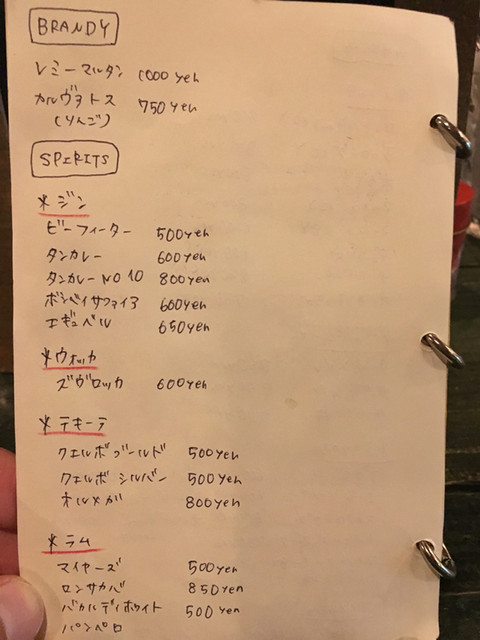 BRANDY
レミーマルタン 1000 yen
カルヴァドス 750 yen
(りんご)
SPIRITS
*ジン
ビーフィーター 500yen
タンカレー 600yen
タンカレー NO 10 800yen
ボンベイサファイア 600yen
エギュベル 650yen
*ウォッカ
ズヴロッカ 600yen
*テキーラ
クエルボゴールド 500yen
クエルボ シルバー 500yen
オルメガ 800yen
*ラム
マイヤーズ 500yen
ロンサカパ 850yen
バカルディホワイト 500yen
パンペロ